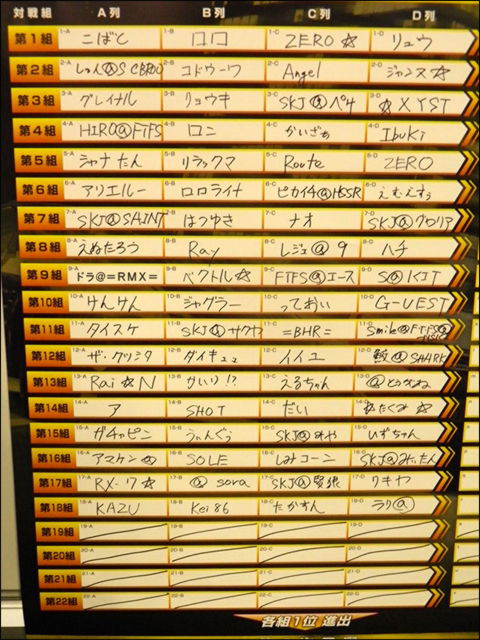 対戦組 A列 B列 C列 D列
第1組 1-A こばと 1-B ロロ 1-C ZERO☆ 1-D リュウ
第2組 コドウーワ 2-C Angel 2-D ジャンヌ☆
第3組 3-A グレイナル 3-B リョウキ 3-C SKJ@ペタ 3-D ☆XYST
第4組 4-A HIRO@FTFS 4-B ロニ 4-C かいざぁ 4-D IbuKi
第5組 5-A シャナたん 5-B リラックマ 5-C Route 5-D ZERO
第6組 6-A アリエルー 6-B ロロライナ 6-C ピカイチ@HSSR 6-D えむえすぅ
第7組 7-A SKJ@SAINT 7-B はつゆき 7-C ナオ 7-D SKJ@グロリア
第8組 8-A えぬたろう 8-B Ray 8-C レジェ@9 8-D ハチ
第9組 9-A ドラ@=RMX= 9-B ベクトル☆ 9-C FTFS@エース 9-D S@KIT
第10組 10-A けんけん 10-B ジャグラー 10-C っておい 10-D G-UEST
第11組 11-A タイスケ 11-B SKJ@サクヤ 11-C =BHR= 11-D Smile@FTFS@
第12組 12-A ザ・クリシタ 12-B ダイキュュ 12-C イイユ 12-D 鮫@SHARK
第13組 13-A Rai☆N 13-B かいり!? 13-C えるちゃん 13-D
第14組 14-A ア 14-B SHOT 14-C だい 14-D ☆たくみ☆
第15組 15-A ガチャピン 15-B うんぐぅ 15-C SKJ@みや 15-D いずちゃん
第16組 16-A アマケン 16-B SOLE 16-C しみコーン 16-D SKJ@みぃたん
第17組 17-A RX-7☆ 17-B @sora 17-C SKJ@緊張 17-D リキヤ
第18組 18-A KAZU 18-B Kei86 18-C たかすん 18-D ラリ@
第19組 19-A 19-B 19-C 19-D
第20組 20-A 20-B 20-C 20-D
第21組 21-A 21-B 21-C 21-D
第22組 22-A 22-B 22-C 22-D
各組1位 進出